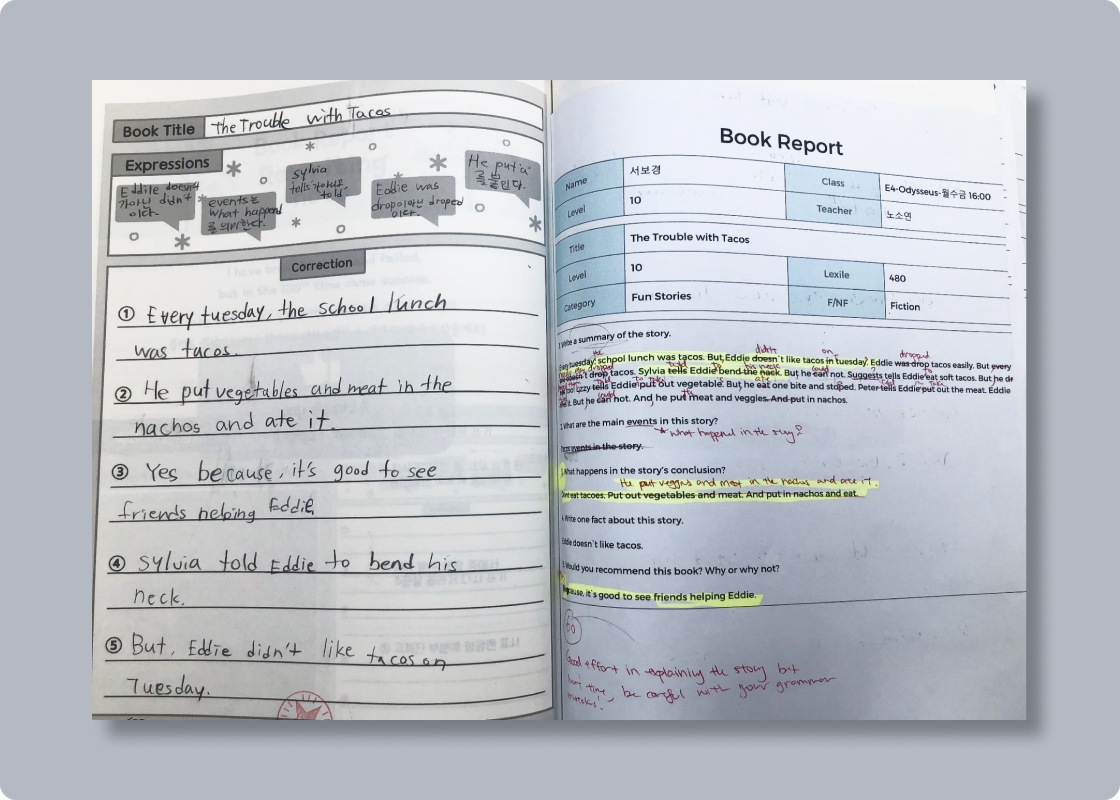 Book Title the Trouble with Tacos
Expressions
Eddile doesn't
가아닌 didn't
이다.
events는
what happend
를 의미한다.
Sylvia
told.
Eddie was
drop이아닌 droped
이다.
He put 'a'
Correction
① Every tuesday, the school lunch
was tacos.
② He put vegetables and meat in the
nachos and ate it.
③ Yes because, it's good to see
friends helping Eddie.
④ Sylvia told Eddie to bend his
neck.
⑤ But, Eddie didn't like tacos on
Tuesday.
Book Report
Name 서보경 Class E4-Odysseus-월수금 16:00
Level 10 Teacher 노소연
Title The Trouble with Tacos
Level 10 Lexile 480
Category Fun Stories F/NF Fiction
Write a summary of the story.
the didn't on dropped
Every tuesday, school lunch was tacos. But, Eddie doesn't like tacos in tuesday. Eddie was drop tacos easily. But every
doesn't drop tacos. Sylvia tells Eddie bend the neck. But he can not. Suggests tells Eddie eat soft tacos. But he
Izzy tells Eddie put out vegetable. But, he eat one bite and stoped. Peter tells Eddie put out the meat. Eddie
But he can hot. And, he put meat and veggies. And put in nachos.
What are the main events in this story?
* What happened in the story?
events in the story.
What happens in the story's conclusion?
He put veggies and meat in the nachos and ate it.
Dont eat tacoes. Put out vegetables and meat. And put in nachos and eat.
Write one fact about this story.
Eddie doesn't like tacos.
Would you recommend this book? Why or why not?
Because, it's good to see friends helping Eddie.
60
Good effort in explaining the story but
next time, be careful with your grammar
mistakes!